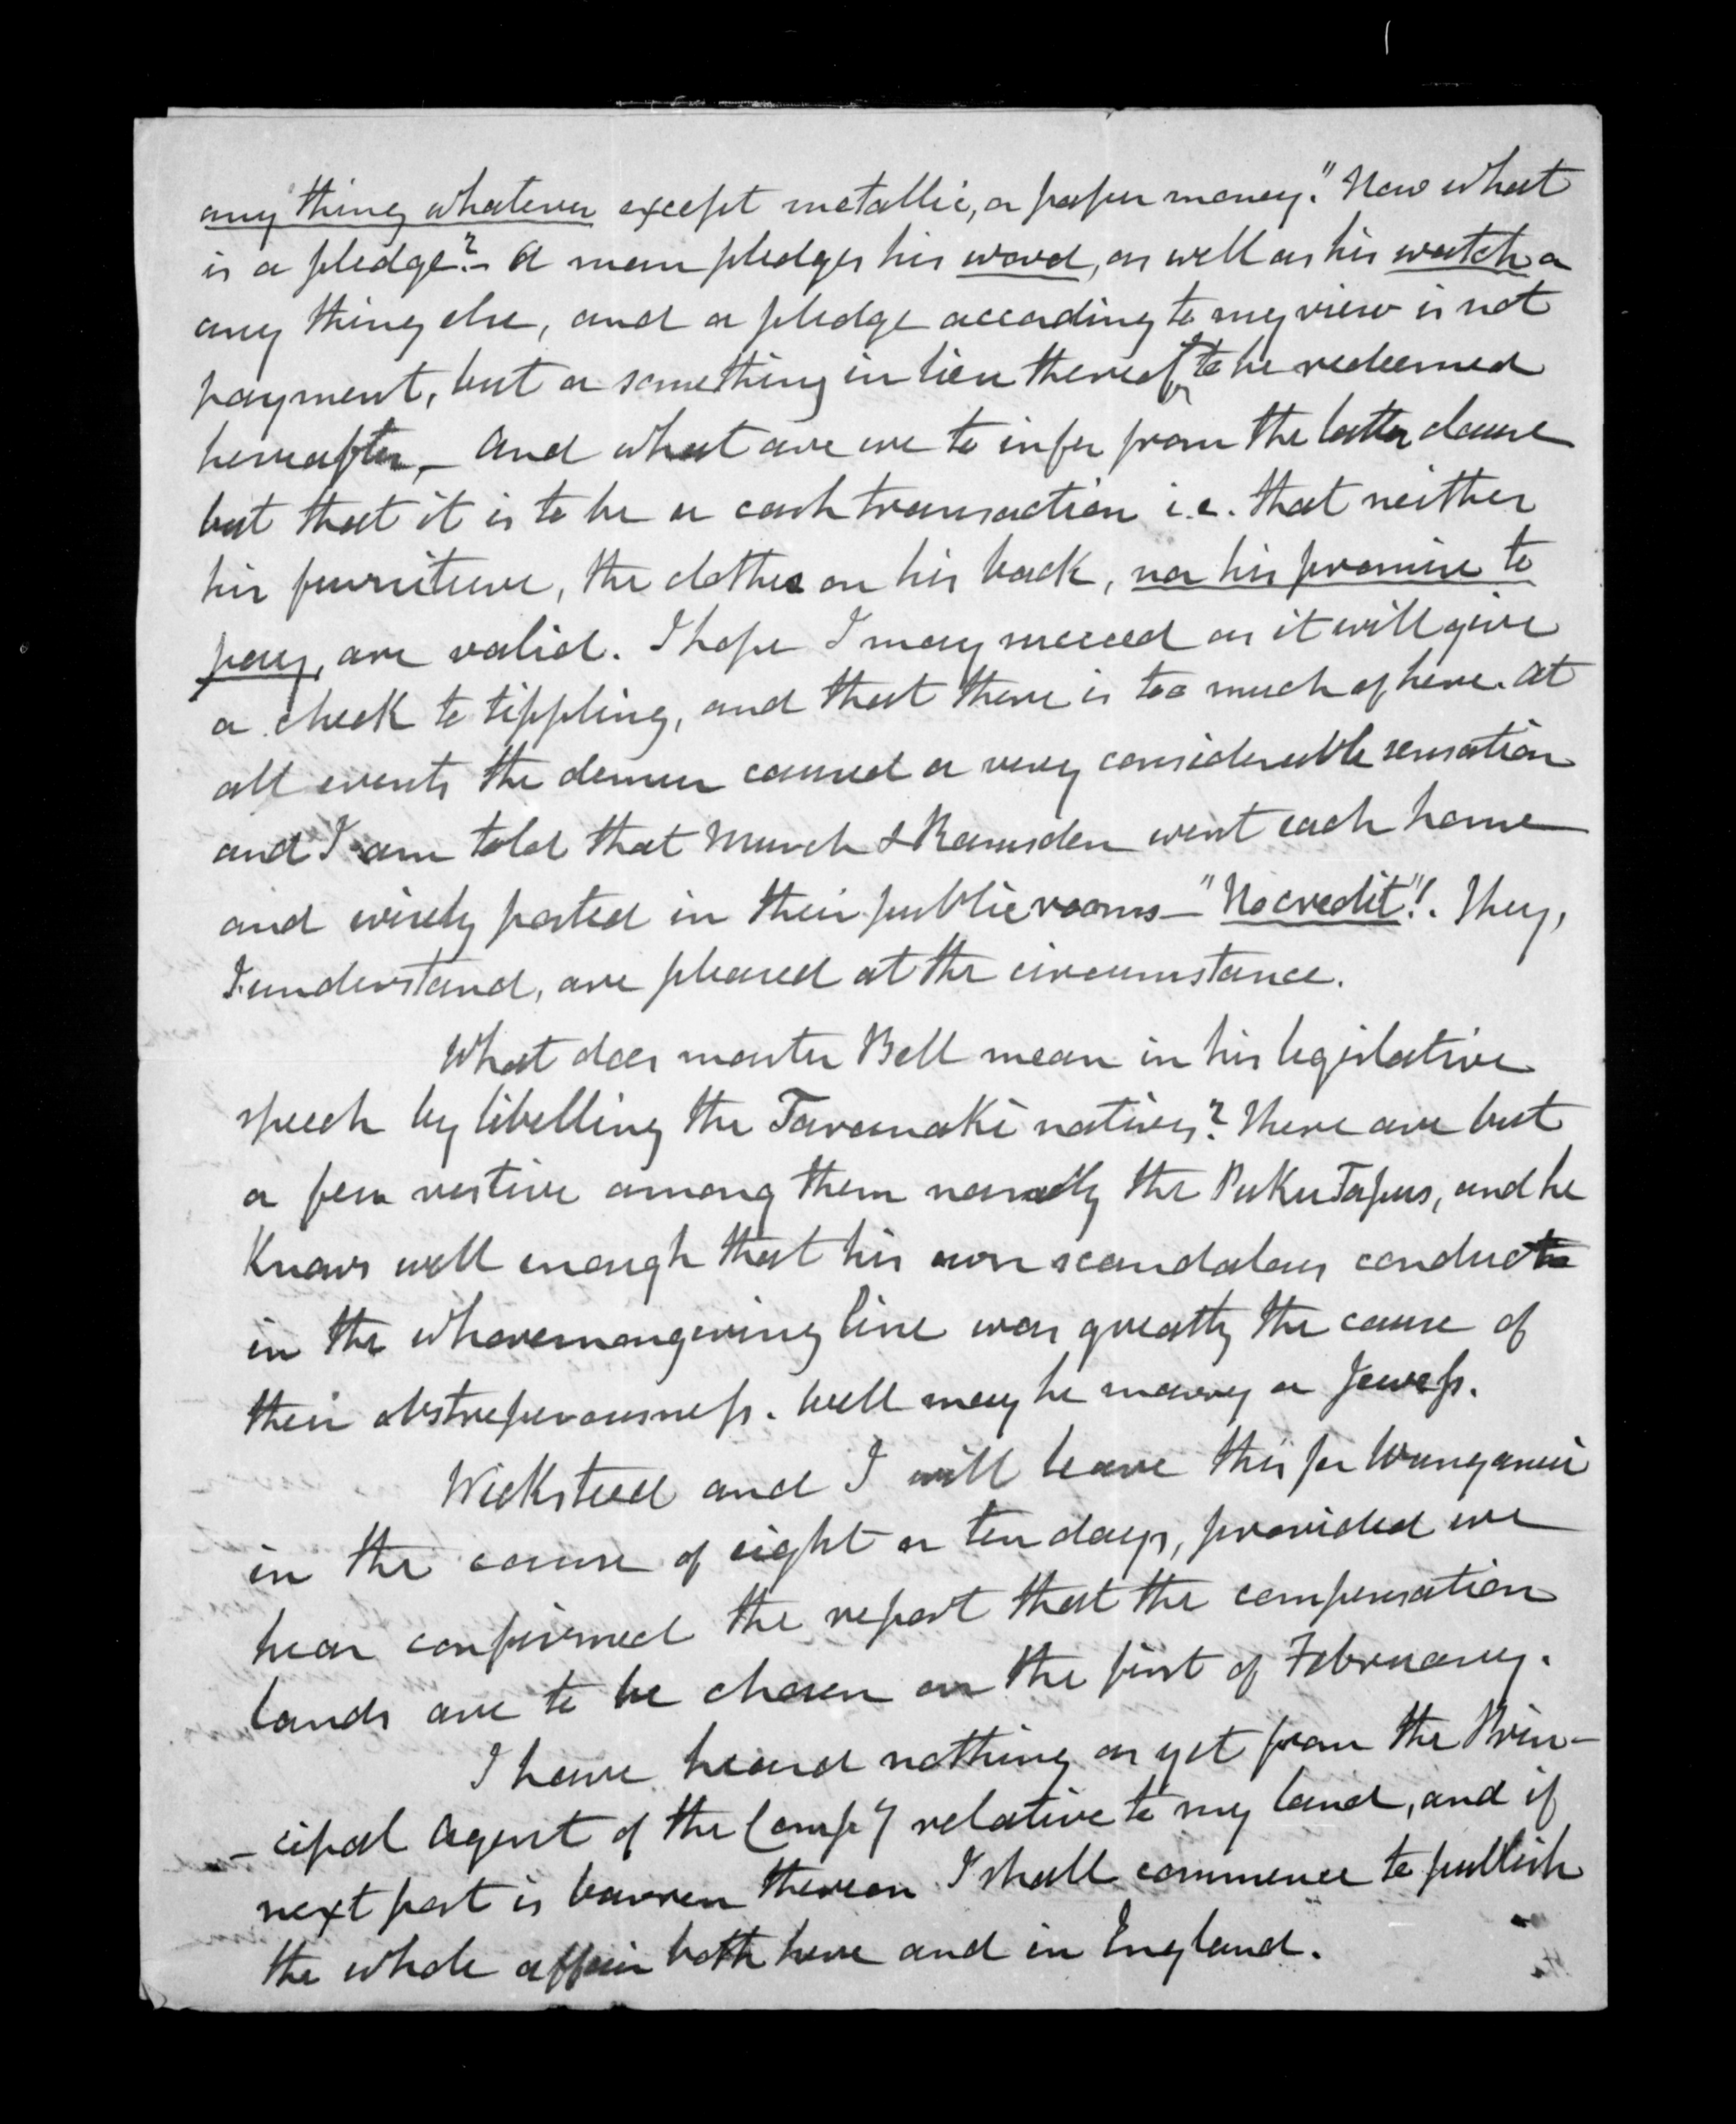 any thing whatever except metallic, or paper money." Now what
is a pledge? - A man pledges his word, as well as his watch or
any thing else, and a pledge according to my view is not
payment, but a something in lieu thereof, to be redeemed
hereafter, - And what are we to infer from the latter clause
but that it is to be a cash transaction i.e. that neither
his furniture, the clothes on his back, nor his promise to
pay, are valid. I hope I may succeed as it will give
a check to tippling, and that there is too much of here. At
all events the demur caused a very considerable sensation
and I am told that March & Ramsden went each home
and wisely posted in their public rooms - "No credit"!. They,
I understand, are pleased at the circumstance.
What does master Bell mean in his legislative
speech by libelling the Taranaki natives? There are but
a few restive among them namely the PukuTapus, and he
Knows well enough that his own scandalous conduct
in the whoremongering line was greatly the cause of
their obstreperousness. Well may he marry a Jewess.
Wicksteed and I will leave this for Wanganui
in the course of eight or ten days, provided we
hear confirmed the report that the compensation
lands are to be chosen on the first of February.
I have heard nothing as yet from the Prin-
-cipal Agent of the Compy relative to my land, and if
next post is barren thereon I shall commence to publish
the whole affair both here and in England.